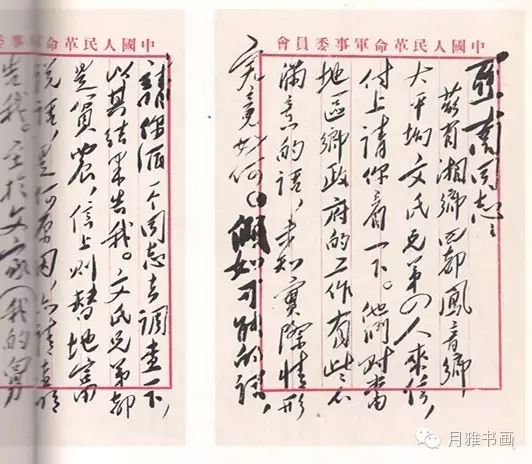 中國人民革命軍事委員會
亞南同志：
茲有湘鄉四都鳳音鄉
大平坳文氏兄弟四人來信，
付上請你看一下。他們對當
地區鄉政府的工作有些不
滿意的話，未知實際情形
究竟如何。假如可能的話，
中國人民革命軍事委
請你派一个同志去調查一下，
以其結果告我。文氏兄弟都
是貧農，信上則替地富
說話，是何原因，亦請查明
告我。至於文家（我的舅
月雅书画